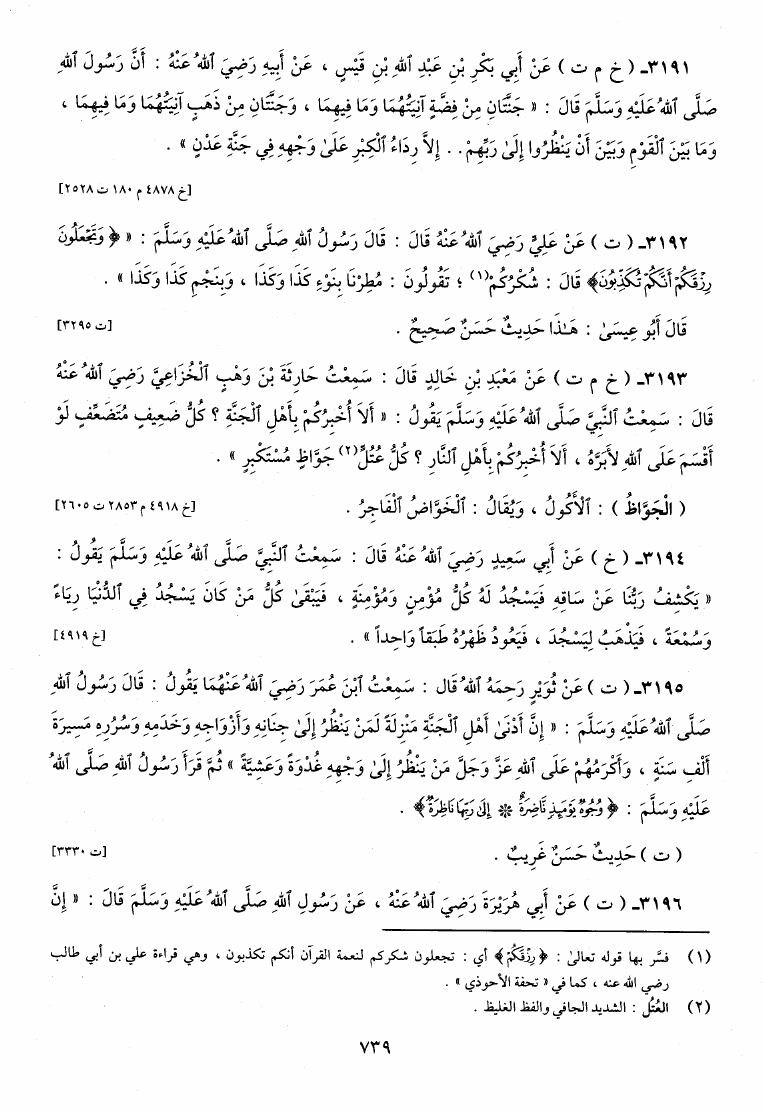 ٣١٩١ـ ( خ م ت ) عَنْ أَبِي بَكْرِ بْنِ عَبْدِ ٱللهِ بْنِ قَيْسٍ ، عَنْ أَبِيهِ رَضِيَ ٱللهُ عَنْهُ : أَنَّ رَسُولَ ٱللهِ
صَلَّى ٱللهُ عَلَيْهِ وَسَلَّمَ قَالَ : « جَنَّتَانِ مِنْ فِضَّةٍ آنِيَتُهُمَا وَمَا فِيهِمَا ، وَجَنَّتَانِ مِنْ ذَهَبٍ آنِيَتُهُمَا وَمَا فِيهِمَا ،
وَمَا بَيْنَ ٱلْقَوْمِ وَبَيْنَ أَنْ يَنْظُرُوا إِلَىٰ رَبِّهِمْ . . إِلاَّ رِدَاءُ ٱلْكِبْرِ عَلَىٰ وَجْهِهِ فِي جَنَّةِ عَدْنٍ » .
[خ ٤٨٧٨ م ١٨٠ ت ٢٥٢٨]
٣١٩٢ـ ( ت ) عَنْ عَلِيٍّ رَضِيَ ٱللهُ عَنْهُ قَالَ : قَالَ رَسُولُ ٱللهِ صَلَّى ٱللهُ عَلَيْهِ وَسَلَّمَ : « ﴿ وَتَجْعَلُونَ
رِزْقَكُمْ أَنَّكُمْ تُكَذِّبُونَ ﴾ قَالَ : شُكْرُكُمْ(١) ؛ تَقُولُونَ : مُطِرْنَا بِنَوْءِ كَذَا وَكَذَا ، وَبِنَجْمِ كَذَا وَكَذَا » .
قَالَ أَبُو عِيسَىٰ : هَـٰذَا حَدِيثٌ حَسَنٌ صَحِيحٌ . [ت ٣٢٩٥]
٣١٩٣ـ ( خ م ت ) عَنْ مَعْبَدِ بْنِ خَالِدٍ قَالَ : سَمِعْتُ حَارِثَةَ بْنَ وَهْبٍ ٱلْخُزَاعِيَّ رَضِيَ ٱللهُ عَنْهُ
قَالَ : سَمِعْتُ ٱلنَّبِيَّ صَلَّى ٱللهُ عَلَيْهِ وَسَلَّمَ يَقُولُ : « أَلاَ أُخْبِرُكُمْ بِأَهْلِ ٱلْجَنَّةِ ؟ كُلُّ ضَعِيفٍ مُتَضَعِّفٍ لَوْ
أَقْسَمَ عَلَى ٱللهِ لأَبَرَّهُ ، أَلاَ أُخْبِرُكُمْ بِأَهْلِ ٱلنَّارِ ؟ كُلُّ عُتُلٍّ(٢) جَوَّاظٍ مُسْتَكْبِرٍ » .
( الْجَوَّاظُ ) : ٱلأَكُولُ ، وَيُقَالُ : ٱلْخَوَّاضُ ٱلْفَاجِرُ . [خ ٤٩١٨ م ٢٨٥٣ ت ٢٦٠٥]
٣١٩٤ـ ( خ ) عَنْ أَبِي سَعِيدٍ رَضِيَ ٱللهُ عَنْهُ قَالَ : سَمِعْتُ ٱلنَّبِيَّ صَلَّى ٱللهُ عَلَيْهِ وَسَلَّمَ يَقُولُ :
« يَكْشِفُ رَبُّنَا عَنْ سَاقِهِ فَيَسْجُدُ لَهُ كُلُّ مُؤْمِنٍ وَمُؤْمِنَةٍ ، فَيَبْقَىٰ كُلُّ مَنْ كَانَ يَسْجُدُ فِي ٱلدُّنْيَا رِيَاءً
وَسُمْعَةً ، فَيَذْهَبُ لِيَسْجُدَ ، فَيَعُودُ ظَهْرُهُ طَبَقاً وَاحِداً » . [خ ٤٩١٩]
٣١٩٥ـ ( ت ) عَنْ ثُوَيْرٍ رَحِمَهُ ٱللهُ قَالَ : سَمِعْتُ ٱبْنَ عُمَرَ رَضِيَ ٱللهُ عَنْهُمَا يَقُولُ : قَالَ رَسُولُ ٱللهِ
صَلَّى ٱللهُ عَلَيْهِ وَسَلَّمَ : « إِنَّ أَدْنَىٰ أَهْلِ ٱلْجَنَّةِ مَنْزِلَةً لَمَنْ يَنْظُرُ إِلَىٰ جِنَانِهِ وَأَزْوَاجِهِ وَخَدَمِهِ وَسُرُرِهِ مَسِيرَةَ
أَلْفِ سَنَةٍ ، وَأَكْرَمُهُمْ عَلَى ٱللهِ عَزَّ وَجَلَّ مَنْ يَنْظُرُ إِلَىٰ وَجْهِهِ غُدْوَةً وَعَشِيَّةً » ثُمَّ قَرَأَ رَسُولُ ٱللهِ صَلَّى ٱللهُ
عَلَيْهِ وَسَلَّمَ : ﴿ وُجُوهٌ يَوْمَئِذٍ نَاضِرَةٌ * إِلَىٰ رَبِّهَا نَاظِرَةٌ ﴾ .
( ت ) حَدِيثٌ حَسَنٌ غَرِيبٌ . [ت ٣٣٣٠]
٣١٩٦ـ ( ت ) عَنْ أَبِي هُرَيْرَةَ رَضِيَ ٱللهُ عَنْهُ ، عَنْ رَسُولِ ٱللهِ صَلَّى ٱللهُ عَلَيْهِ وَسَلَّمَ قَالَ : « إِنَّ
(١) فسَّر بها قوله تعالىٰ : ﴿ رِزْقَكُمْ ﴾ أي : تجعلون شكركم لنعمة القرآن أنكم تكذبون ، وهي قراءة علي بن أبي طالب
رضي الله عنه ، كما في « تحفة الأحوذي » .
(٢) العُتُل : الشديد الجافي والفظ الغليظ .
٧٣٩